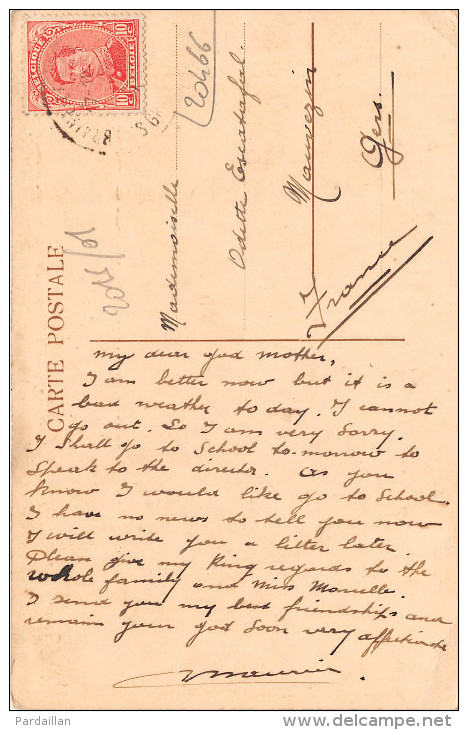 BELGIQUE BELGIE
10 10
20466
Mademoiselle
Odette Escatafal
Mauvezin
Gers.
France
CARTE POSTALE
my dear god mother,
I am better now but it is a
bad weather to day. I cannot
go out. So I am very sorry.
I shall go to School to-morrow to
Speak to the director. As you
know I would like go to School.
I have no news to tell you now
I will write you a litter later.
Please give my King regards to the
whole family and Miss
I send you my best friendships and
remain your god Soon very affectionate
Maurice
Pardaillan
http://www.delcampe.net